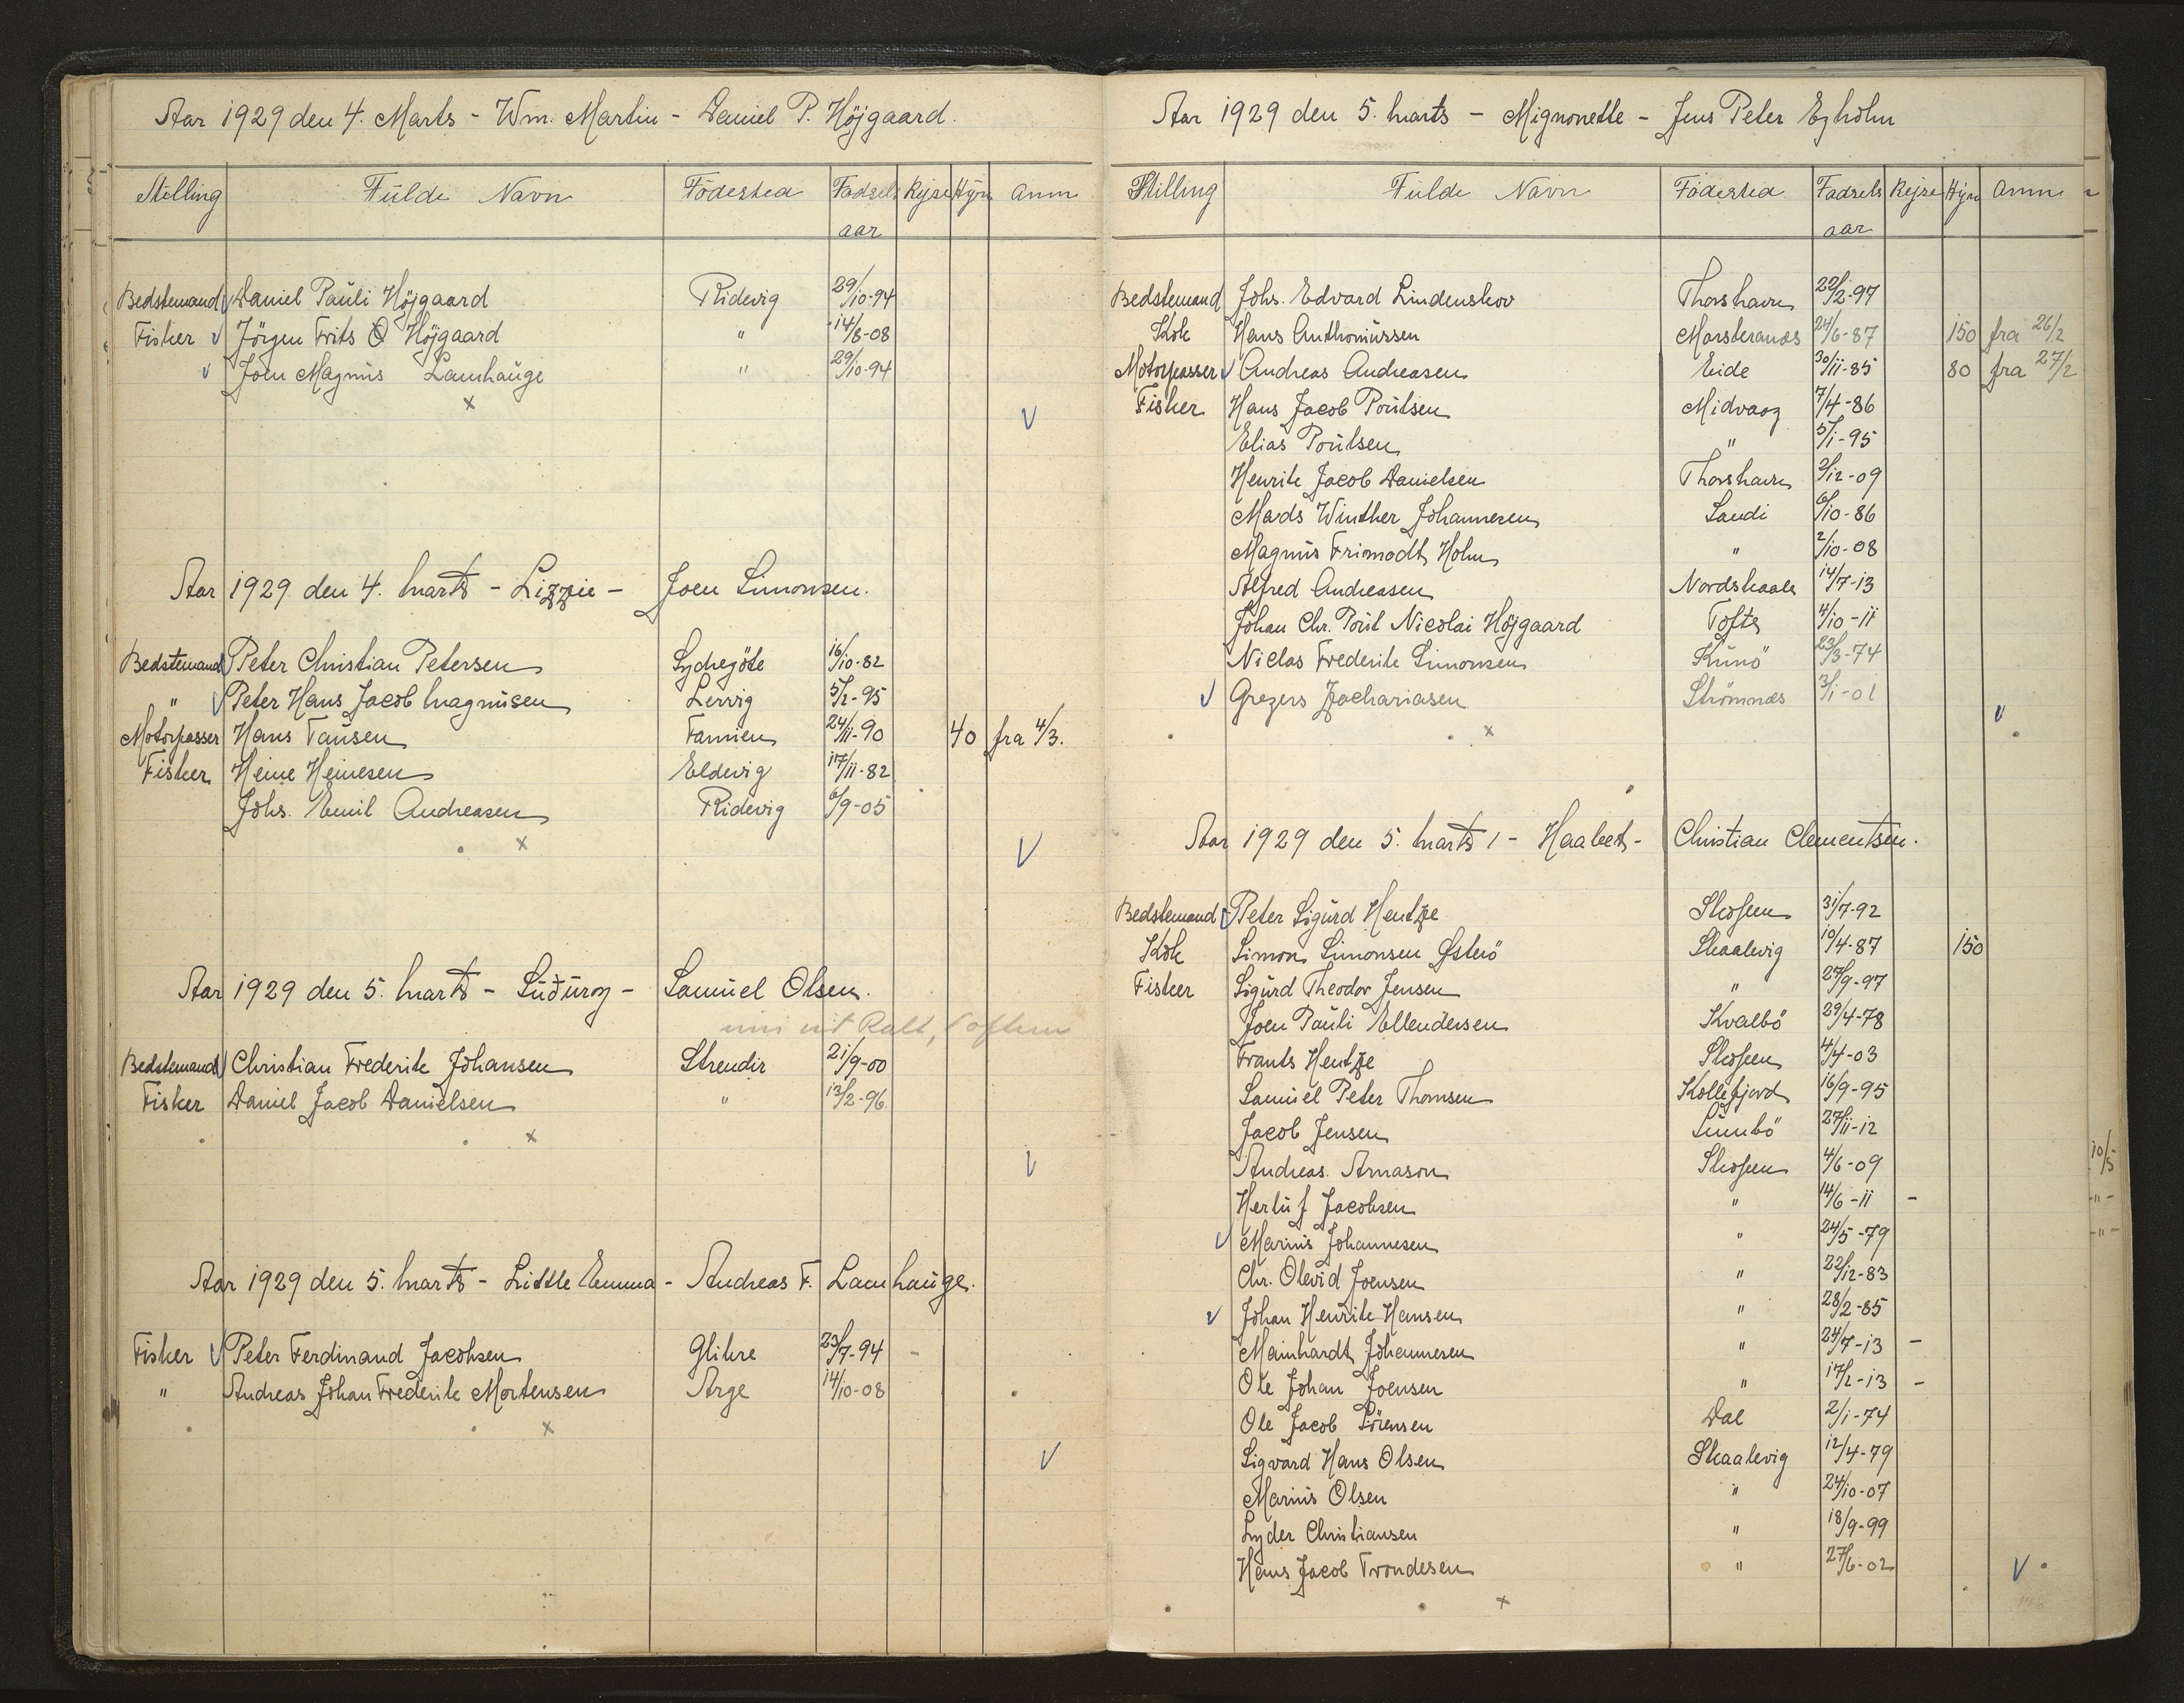 Aar 1929 den 4. Marts - Wm. Martin - Daniel P. Höjgaard.
Stilling Fulde Navn Födested Fødsels aar Hyre Anm
Bedstemand Daniel Pauli Höjgaard Ridevig 29/10-94
Fisker Jörgen Frits O Höjgaard " 14/8-08
Joen Magnus Lamhauge " 29/10-94
x
Aar 1929 den 4. Marts - Lizzie - Joen Simonsen.
Bedstemand Peter Christian Petersen Sydregöte 16/10-82
" Peter Hans Jacob Magnusen Lervig 5/2-95
Motorpasser Hans Tausen Famien 24/11-90 40 fra 4/3.
Fisker Heine Heinesen Eldevig 17/11-82
Johs. Emil Andreasen Ridevig 6/9-05
x
Aar 1929 den 5. Marts - Suðuroy - Samuel Olsen.
Bedstemand Christian Frederik Johansen Strendir 21/9-00
Fisker Daniel Jacob Danielsen " 13/2-96
x
Aar 1929 den 5. Marts - Little Emma - Andreas F. Lamhauge.
Fisker Peter Ferdinand Jacobsen Glibre 23/7-94 -
" Andreas Johan Frederik Mortensen Arge 14/10-08
x
Aar 1929 den 5. Marts - Mignonette - Jens Peter Egholm
Stilling Fulde Navn Födested Fødsels aar Rejse Hyre Anm
Bedstemand Johs. Edvard Lindenskov Thorshavn 22/2-97
Kok Hans Anthoniussen Morskranes 24/6-87 150 fra 26/2
Motorpasser Andreas Andreasen Eide 30/11-85 80 fra 27/2
Fisker Hans Jacob Poulsen Midvaag 7/4-86
Elias Poulsen " 5/1-95
Henrik Jacob Danielsen Thorshavn /12-09
Mads Winther Johannesen Sandi 6/10-86
Magnus Frimodt Holm " 2/10-08
Alfred Andreasen Nordskaale 14/7-13
Johan Chr. Poul Nicolai Höjgaard Tofte 4/10-11
Niclas Frederik Simonsen Kunö 23/3-74
Gregers Zachariasen Strömnæs 3/1-01
x
Aar 1929 den 5. Marts 1 - Haabet - Christian Clementsen.
Bedstemand Peter Sigurd Hentze Skofeen 31/7-92
Kok Simon Simonsen Østerö Skaalevig 10/4-87 150
Fisker Sigurd Theodor Jensen " 27/9-97
Joen Pauli Ellendersen Kvalbö 29/4-78
Frants Hentze Skofeen 4/4-03
Samuel Peter Thomsen Kollefjord 16/9-95
Jacob Jensen Sumbö 27/11-12
Andreas. Arnason Skofeen 4/6-09
Herluf Jacobsen " 14/6-11 -
Marius Johannesen " 24/5-79
Chr. Olevid Joensen " 22/12-83
Johan Henrik Hansen " 28/2-85
Mainhardt Johannesen " 24/7-13 -
Ole Johan Joensen " 17/2-13 -
Ole Jacob Sörensen Dal 2/1-74
Sigvard Hans Olsen Skaalevig 12/4-79
Marius Olsen " 24/10-07
Lyder Christiansen " 18/9-99
Hans Jacob Trondesen " 27/6-02
x
10/5
-"-
-"-